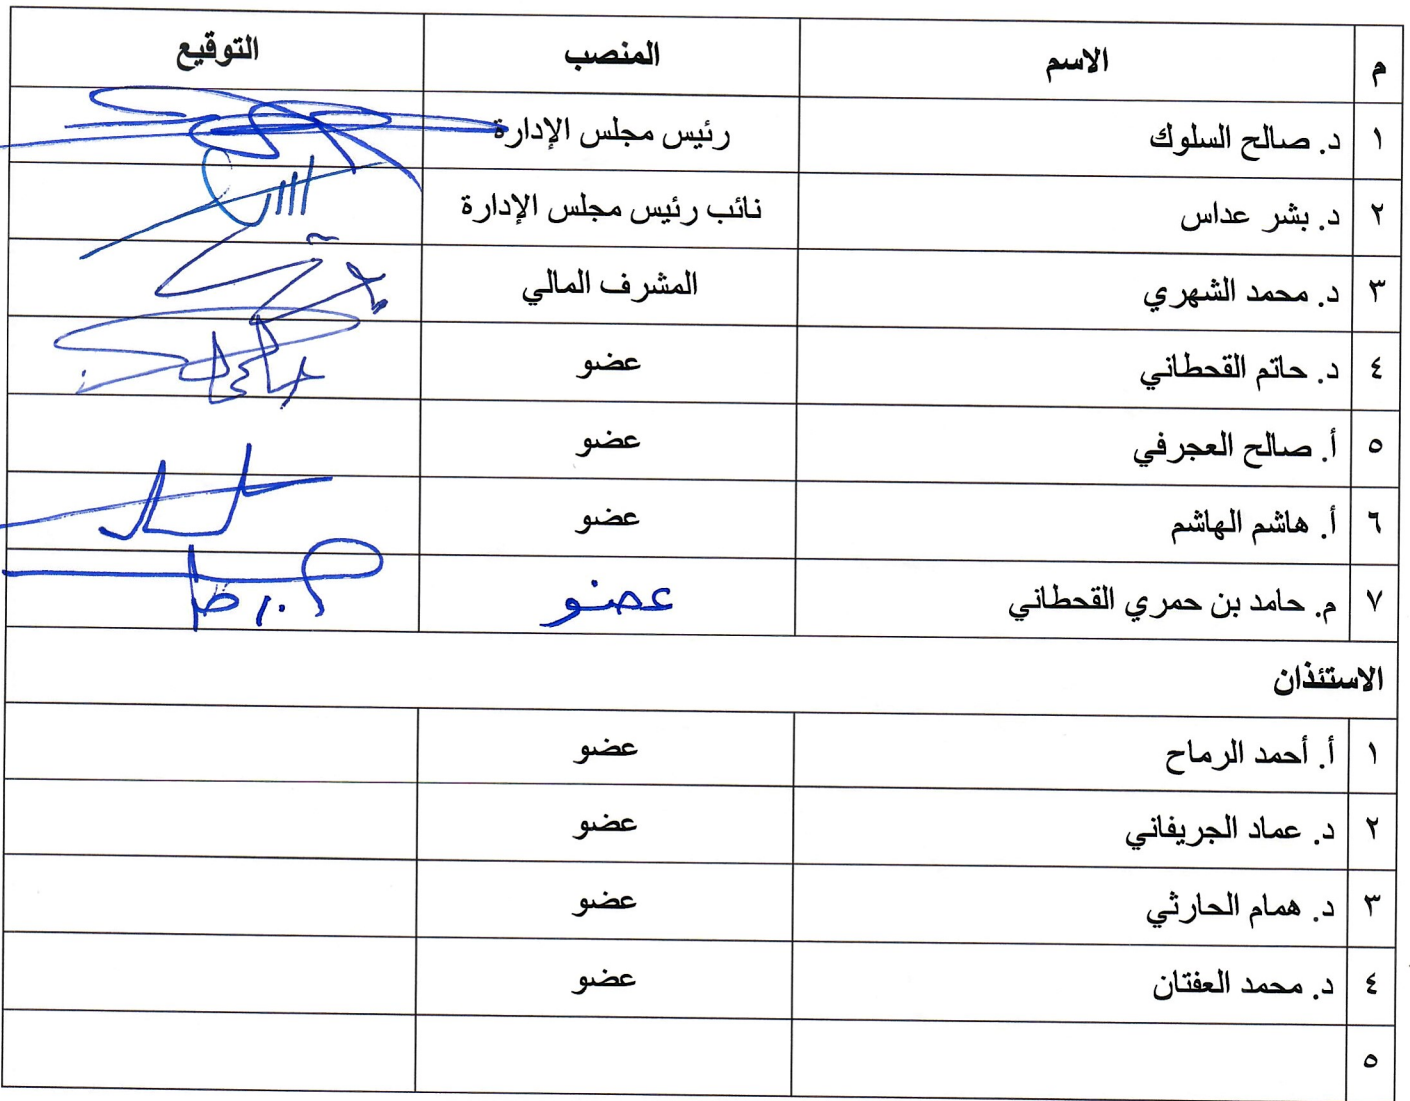 م الاسم المنصب التوقيع
١ د. صالح السلوك رئيس مجلس الإدارة
٢ د. بشر عداس نائب رئيس مجلس الإدارة
٣ د. محمد الشهري المشرف المالي
٤ د. حاتم القحطاني عضو
٥ أ. صالح العجرفي عضو
٦ أ. هاشم الهاشم عضو
٧ م. حامد بن حمري القحطاني عضو
الاستئذان
١ أ. أحمد الرماح عضو
٢ د. عماد الجريفاني عضو
٣ د. همام الحارثي عضو
٤ د. محمد العفتان عضو
٥